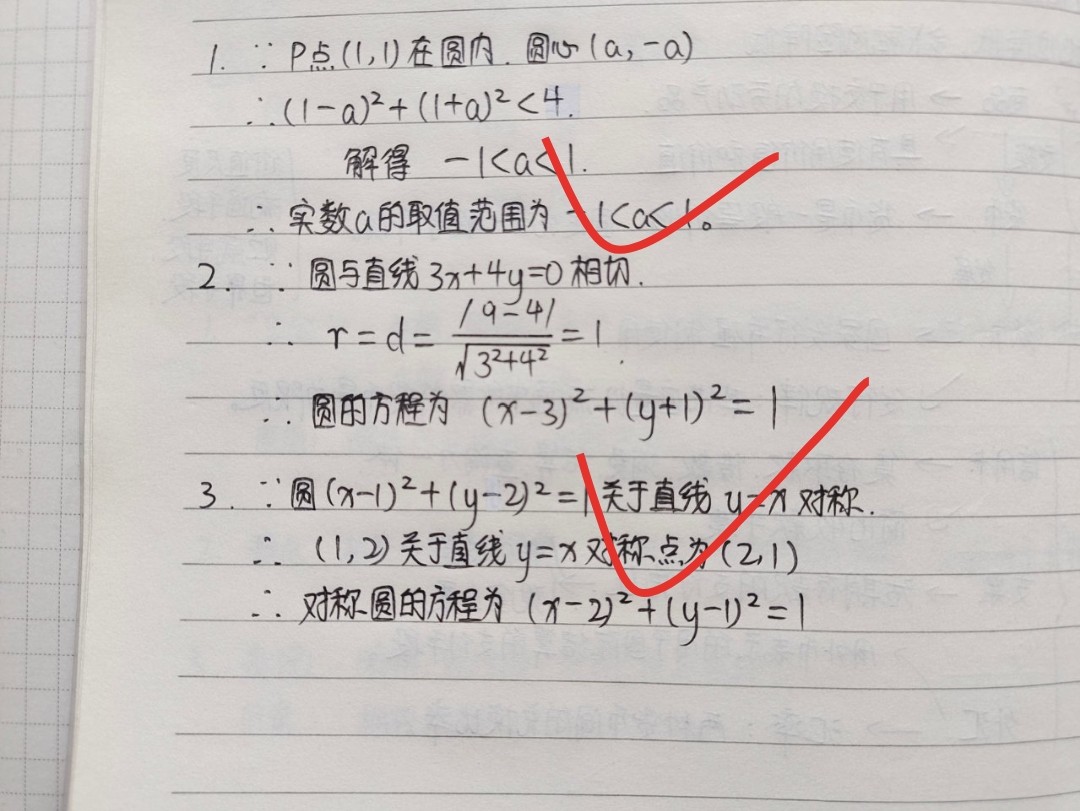 1. ∵ P点(1,1)在圆内. 圆心(a,-a)
∴(1-a)²+(1+a)²<4.
解得 -1<a<1.
∴实数a的取值范围为 -1<a<1。
2. ∵ 圆与直线3x+4y=0相切.
∴ r=d=|9-4|/√3²+4²=1.
∴ 圆的方程为 (x-3)²+(y+1)²=1
3. ∵圆(x-1)²+(y-2)²=1关于直线y=x对称.
∴ (1,2)关于直线y=x对称点为(2,1)
∴ 对称圆的方程为(x-2)²+(y-1)²=1